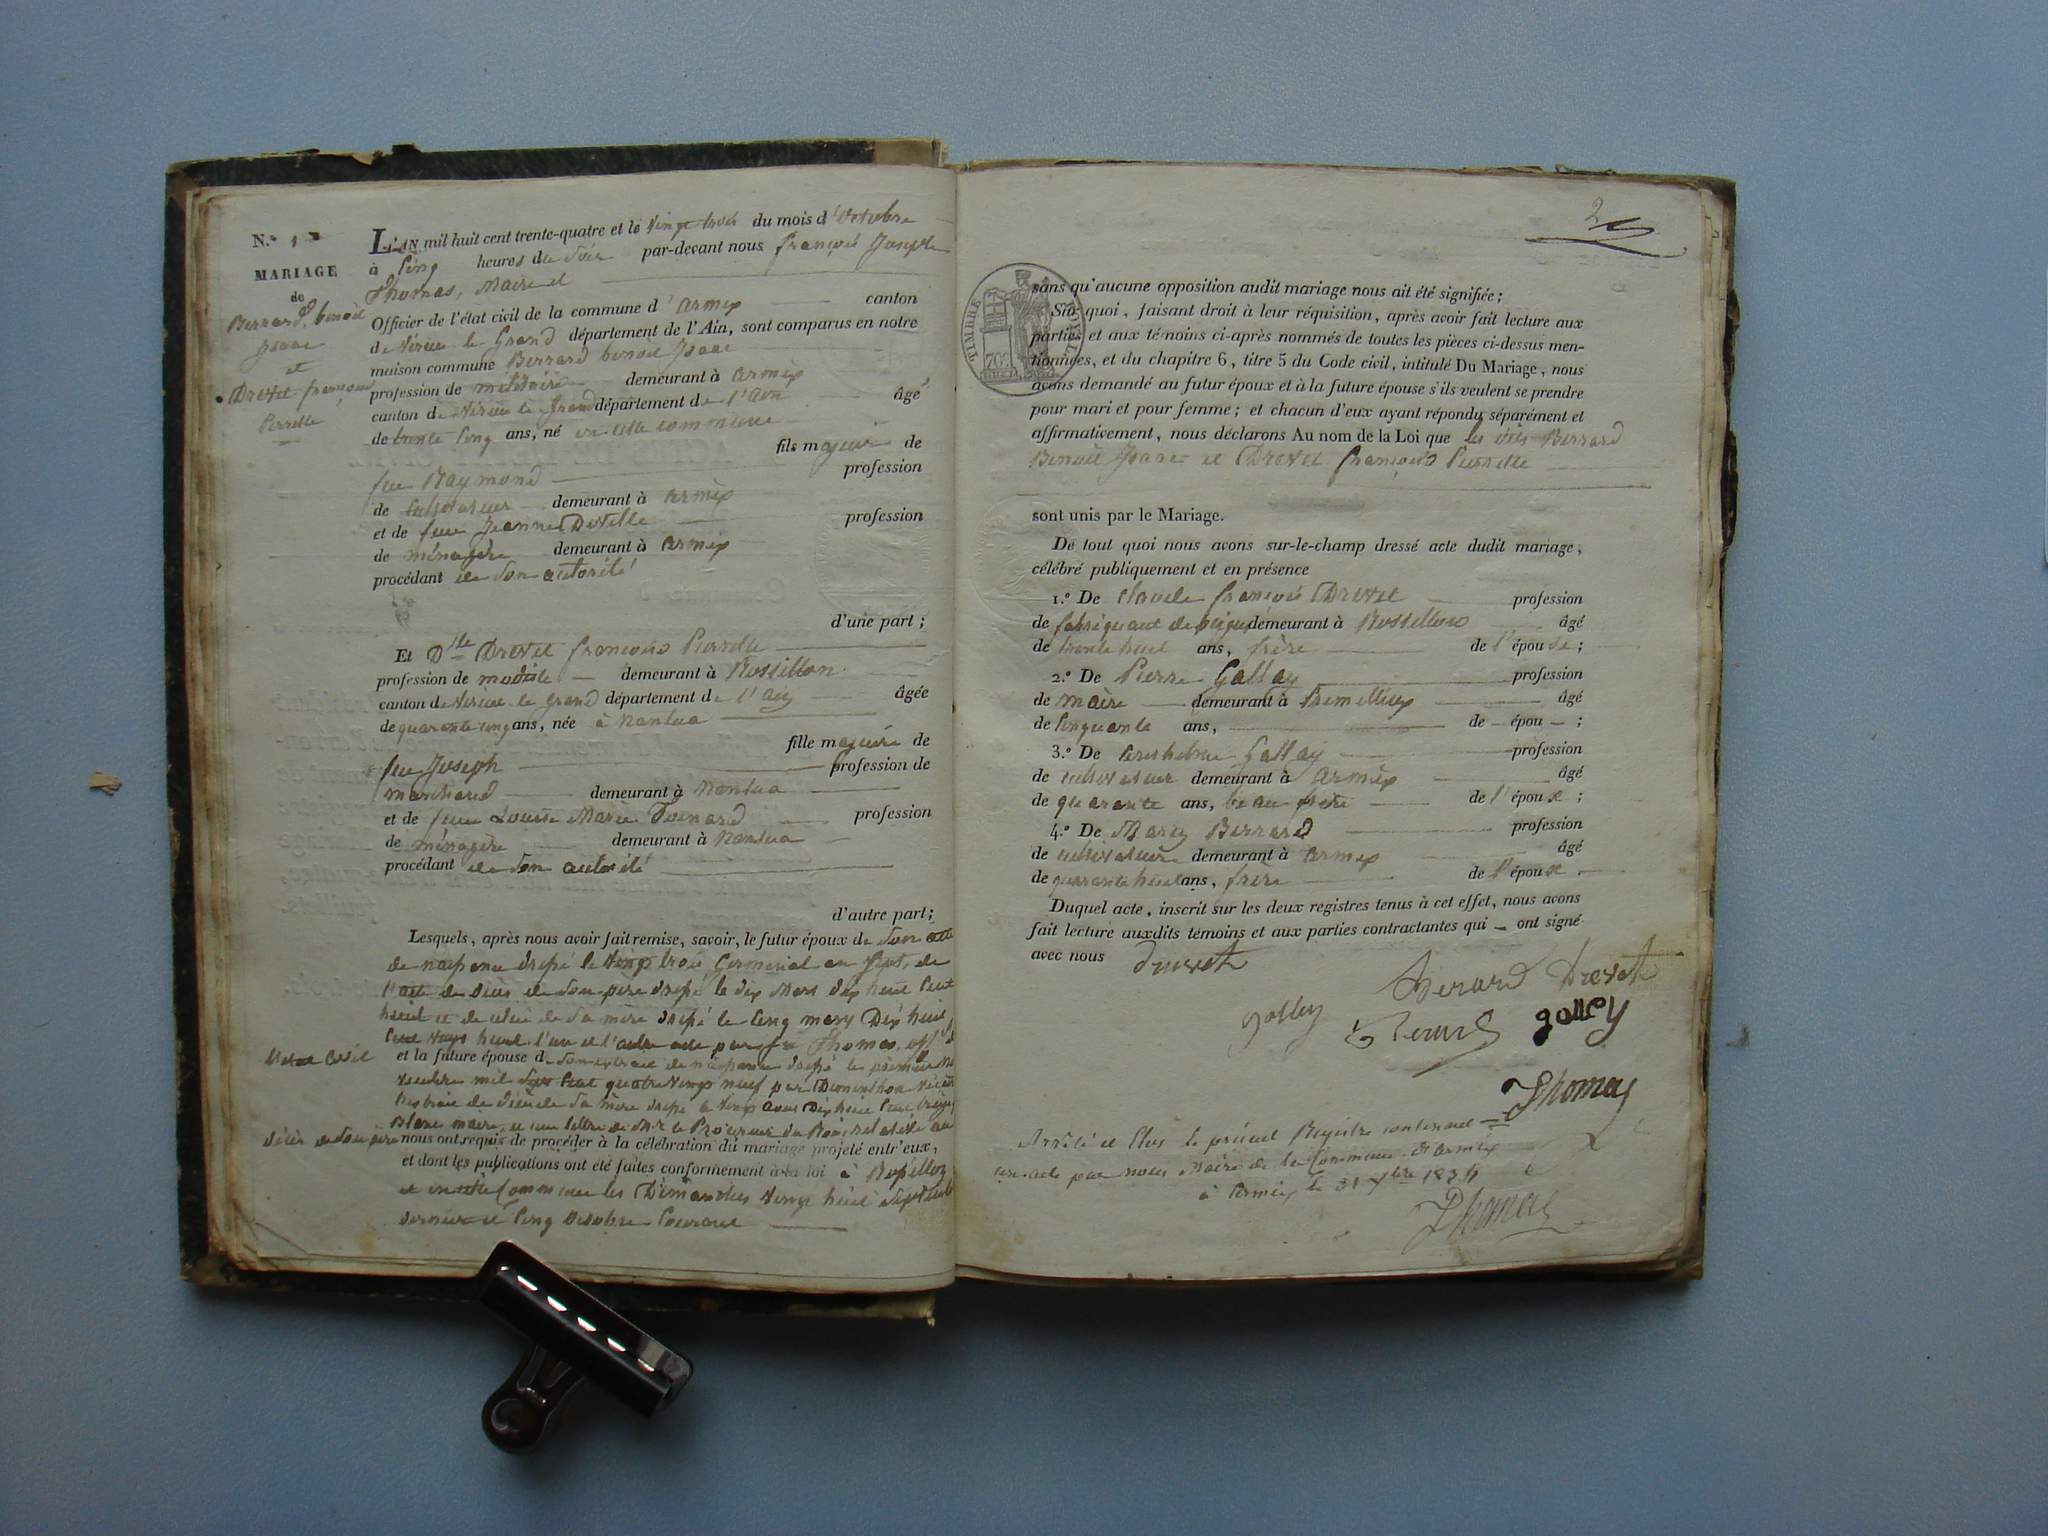 N.º 1
MARIAGE
de
Berrard, benoit
Isaac
et
Drevet françoise
Pierrette
L'AN mil huit cent trente-quatre et le vingt trois du mois d'octobre
à cinq heures du soir par-devant nous françois Joseph
Thomas, maire et
Officier de l'état civil de la commune d'armix canton
de virieu le Grand département de l'Ain, sont comparus en notre
maison commune Berrard benoit Isaac
profession de militaire demeurant à armix
canton de virieu le Grand département de l'ain âgé
de trente cinq ans, né en cette commune
fils majeur de
feu Raymond profession
de cultivateur demeurant à armix
et de feue Jeanne Deville profession
de ménagère demeurant à armix
procédant de son autorité
d'une part ;
Et Dlle Drevet françoise Pierrette
profession de modiste demeurant à Rossillon
canton de virieu-le grand département de l'ain âgée
de quarante cinq ans, née à nantua
fille majeure de
feu Joseph profession de
marchand demeurant à nantua
et de feue Louise Marie profession
de ménagère demeurant à nantua
procédant de son autorité
d'autre part ;
Lesquels, après nous avoir fait remise, savoir, le futur époux de son acte
de naissance dressé le vingt trois Germinal an sept, de
l'acte de décès de son père dressé le dix Mars dix huit cent
huit et de celui de sa mère dressé le cinq mars Dix huit
cent vingt huit, l'un et l'autre acte par Thomas, off
et la future épouse de son extrait de naissance dressé le premier
mil sept cent quatre vingt neuf par
de décès de sa mère dressé le vingt avril Dix huit cent treize
Blanc maire, et une lettre de Mr le Procureur du Roi
décès de son père
nous ont requis de procéder à la célébration du mariage projeté entr'eux,
et dont les publications ont été faites conformément à la loi à Rossillon
et en cette Commune les Dimanches vingt huit septembre
dernier et cinq octobre courant
2
TIMBRE ROYAL
70c
sans qu'aucune opposition audit mariage nous ait été signifiée ;
Sur quoi, faisant droit à leur réquisition, après avoir fait lecture aux
parties et aux témoins ci-après nommés de toutes les pièces ci-dessus men-
tionnées, et du chapitre 6, titre 5 du Code civil, intitulé Du Mariage, nous
avons demandé au futur époux et à la future épouse s'ils veulent se prendre
pour mari et pour femme ; et chacun d'eux ayant répondu séparément et
affirmativement, nous déclarons Au nom de la Loi que les dits Berrard
Benoit Isaac et Drevet françoise Pierrette
sont unis par le Mariage.
De tout quoi nous avons sur-le-champ dressé acte dudit mariage,
célébré publiquement et en présence
1.º De Claude françois Drevet profession
de fabriquant de peignes demeurant à Rossillon âgé
de trente huit ans, frère de l'épouse ;
2.º De Pierre Gallay profession
de maire demeurant à Premillieu âgé
de cinquante ans, de — épou — ;
3.º De Anthelme Gallay profession
de cultivateur demeurant à armix âgé
de quarante ans, beau frère de l'époux ;
4.º De Marin Berrard profession
de cultivateur demeurant à armix âgé
de quarante huit ans, frère de l'époux
Duquel acte, inscrit sur les deux registres tenus à cet effet, nous avons
fait lecture auxdits témoins et aux parties contractantes qui — ont signé
avec nous Drevet
Berard Drevet
galley galley
Thomas
Arrêté et Clos le présent Registre contenant
un acte par nous Maire de la Commune d'armix
à armix le 31 Xbre 1834
Thomas